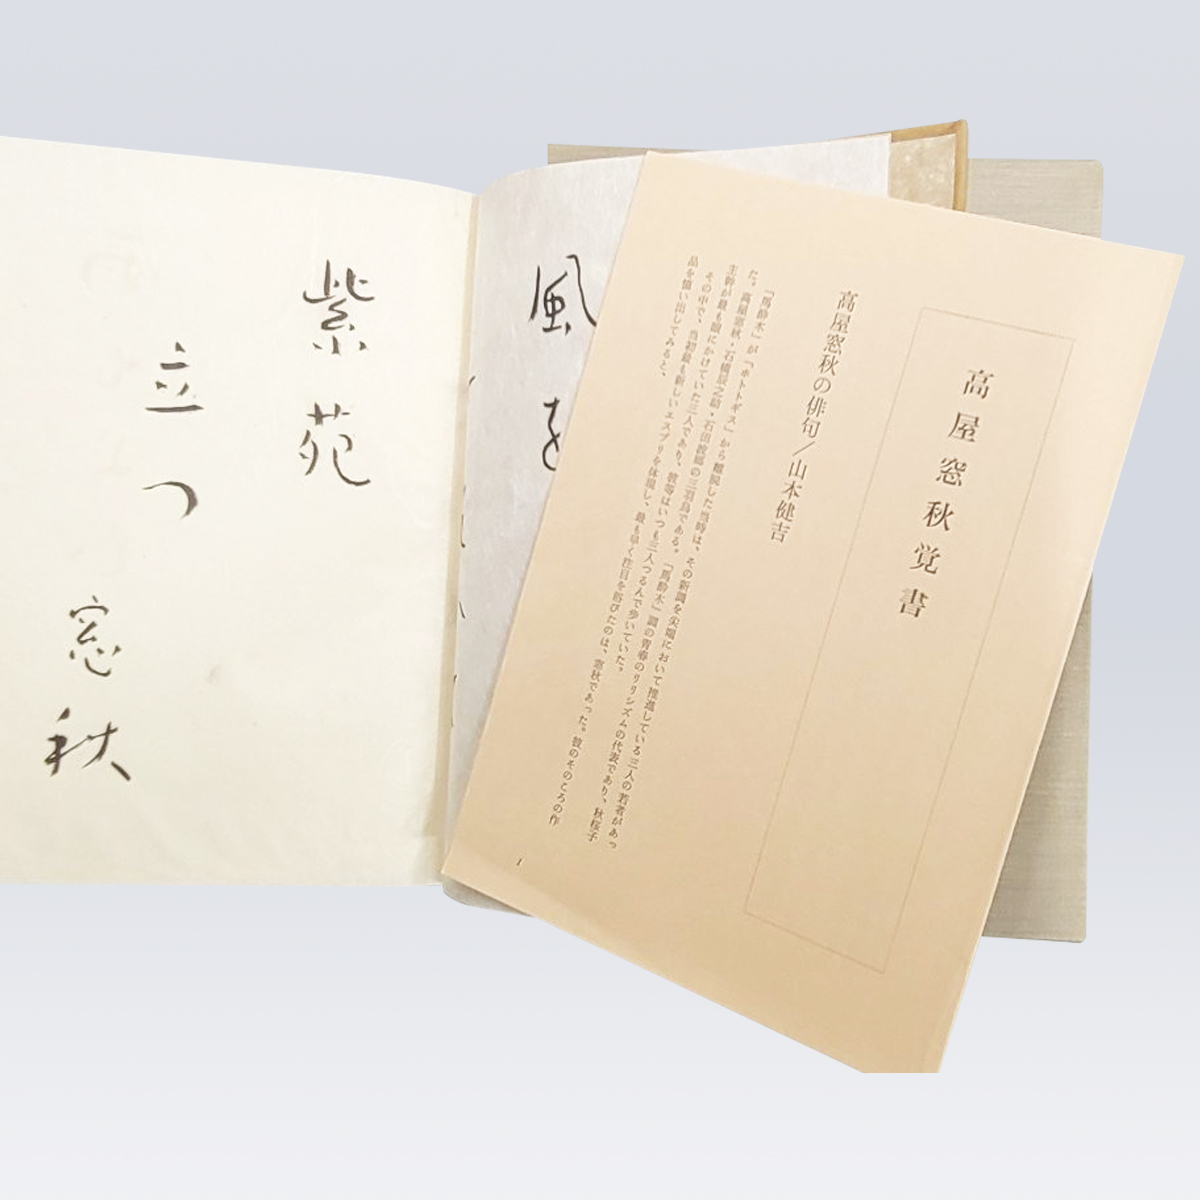 高屋窓秋覚書
高屋窓秋の俳句／山本健吉
「馬酔木」が「ホトトギス」から離脱した当時は、その新調を尖端において推進している三人の若者があっ
た。高屋窓秋・石橋辰之助・石田波郷の三羽烏である。「馬酔木」調の青春のリリシズムの代表であり、秋桜子
主幹が最も眼にかけていた三人であり、彼等はいつも三人つるんで歩いていた。
その中で、当初最も新しいエスプリを体現し、最も早く注目を浴びたのは、窓秋であった。彼のそのころの作
品を憶い出してみると、
1
風を
紫苑
立つ
窓秋